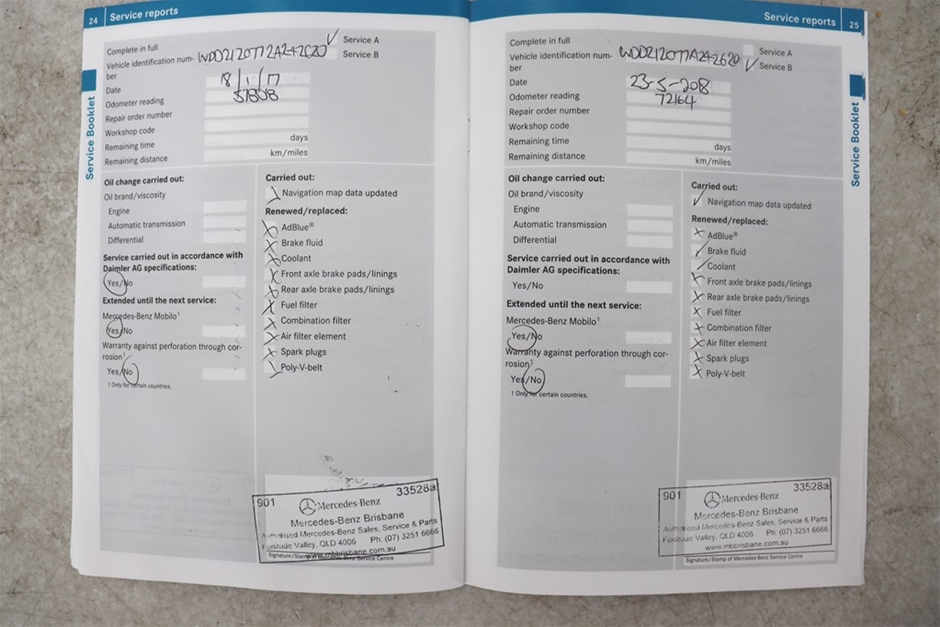 24 Service reports
Complete in full
Vehicle identification num- WDD2120772A242620
ber
✓ Service A
Service B
Date 18/1/17
Odometer reading 51808
Repair order number
Workshop code
Remaining time days
Remaining distance km/miles
Service Booklet
Oil change carried out:
Oil brand/viscosity
Engine
Automatic transmission
Differential
Service carried out in accordance with
Daimler AG specifications:
Yes/No
Extended until the next service:
Mercedes-Benz Mobilo¹
Yes/No
Warranty against perforation through cor-
rosion¹
Yes/No
¹ Only for certain countries.
Carried out:
Navigation map data updated
Renewed/replaced:
AdBlue®
Brake fluid
Coolant
Front axle brake pads/linings
Rear axle brake pads/linings
Fuel filter
Combination filter
Air filter element
Spark plugs
Poly-V-belt
901 33528a
Mercedes-Benz
Mercedes-Benz Brisbane
Authorised Mercedes-Benz Sales, Service & Parts
Fortitude Valley, QLD 4006 Ph: (07) 3251 6666
www.mbbrisbane.com.au
Signature/Stamp of Mercedes-Benz Service Centre
Service reports 25
Complete in full
Vehicle identification num- WDD2120772A242620
ber
Service A
✓ Service B
Date 23-5-2018
Odometer reading 72164
Repair order number
Workshop code
Remaining time days
Remaining distance km/miles
Service Booklet
Oil change carried out:
Oil brand/viscosity
Engine
Automatic transmission
Differential
Service carried out in accordance with
Daimler AG specifications:
Yes/No
Extended until the next service:
Mercedes-Benz Mobilo¹
Yes/No
Warranty against perforation through cor-
rosion¹
Yes/No
¹ Only for certain countries.
Carried out:
Navigation map data updated
Renewed/replaced:
AdBlue®
Brake fluid
Coolant
Front axle brake pads/linings
Rear axle brake pads/linings
Fuel filter
Combination filter
Air filter element
Spark plugs
Poly-V-belt
901 33528a
Mercedes-Benz
Mercedes-Benz Brisbane
Authorised Mercedes-Benz Sales, Service & Parts
Fortitude Valley, QLD 4006 Ph: (07) 3251 6666
www.mbbrisbane.com.au
Signature/Stamp of Mercedes-Benz Service Centre